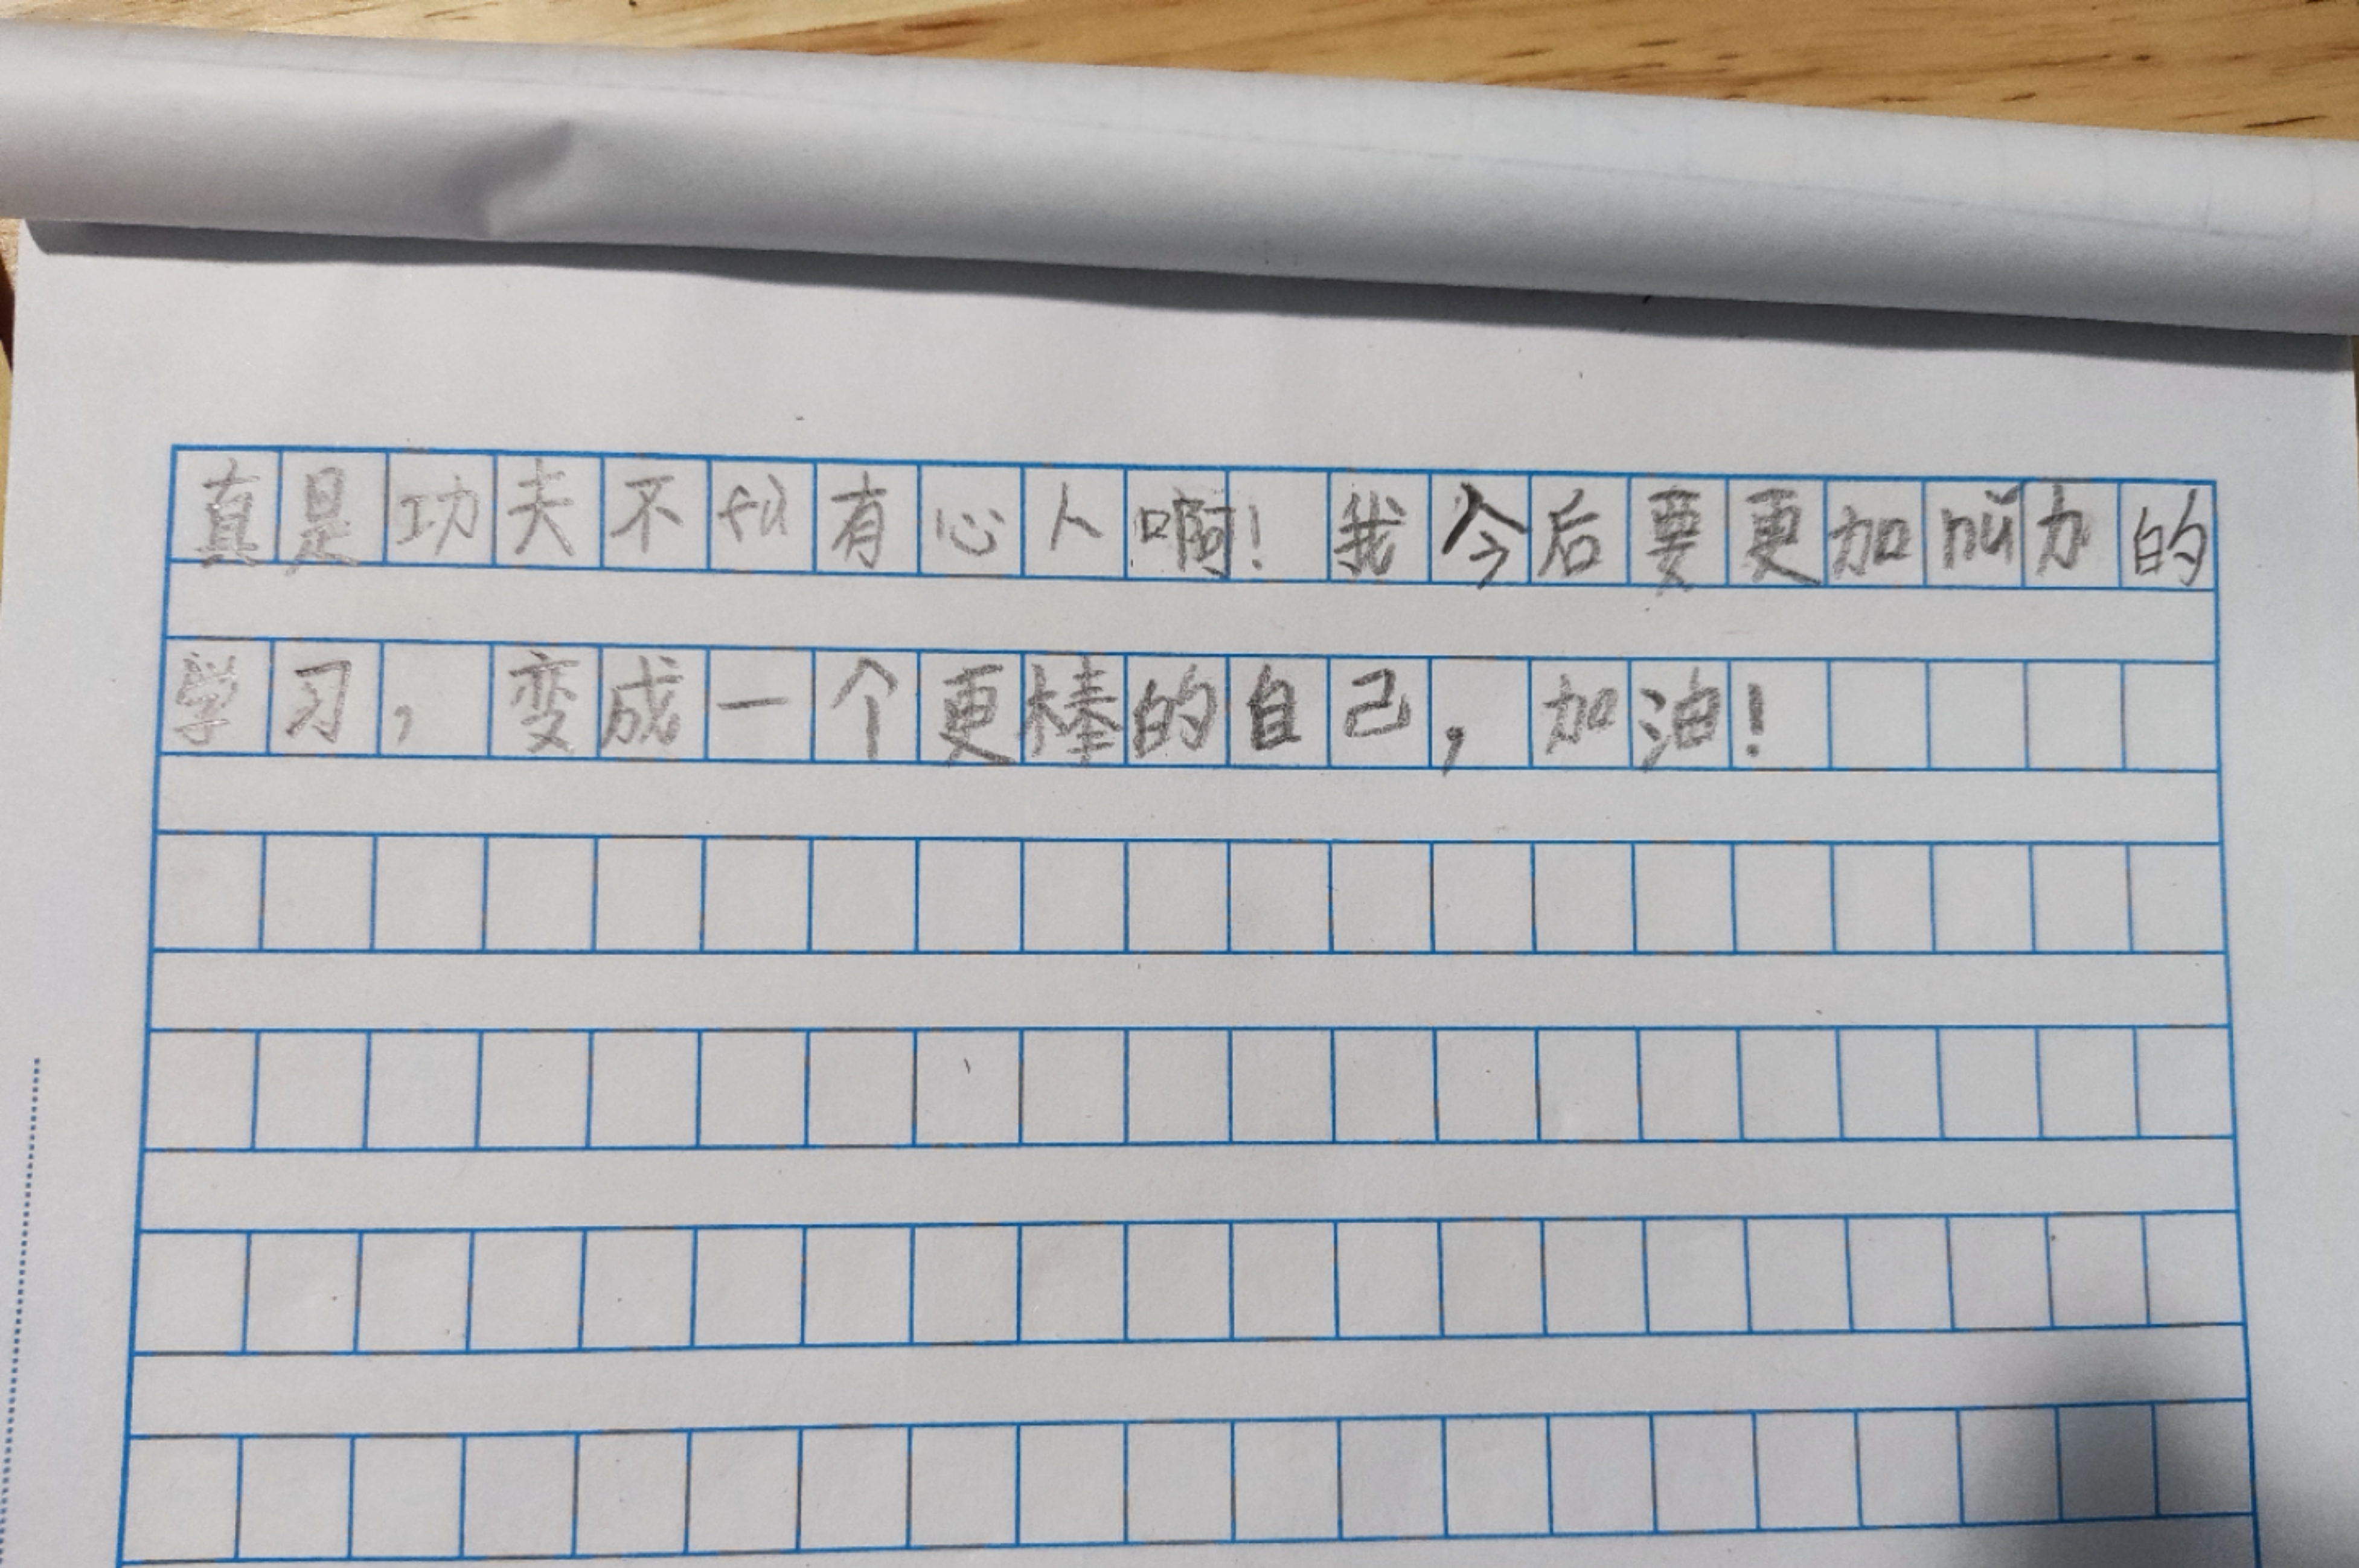 真是功夫不fù有心人啊!我今后要更加nǔ力的
学习,变成一个更棒的自己,加油!